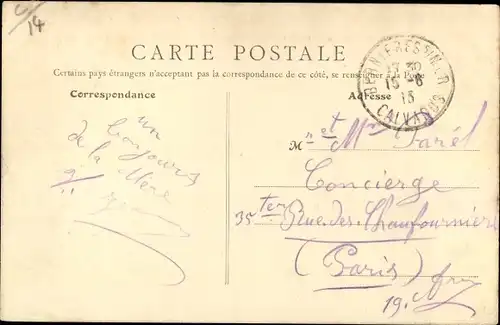 C/14
CARTE POSTALE
Certains pays étrangers n'acceptant pas la correspondance de ce côté, se renseigner à la Poste
Correspondance
Adresse
BERNIERES S/MER
17 30
15 -8
13
CALVADOS
un
bonjour
de la Mère
M r et Mme Farél
Concierge
35 ter Rue des Chaufourniers
(Paris)
19